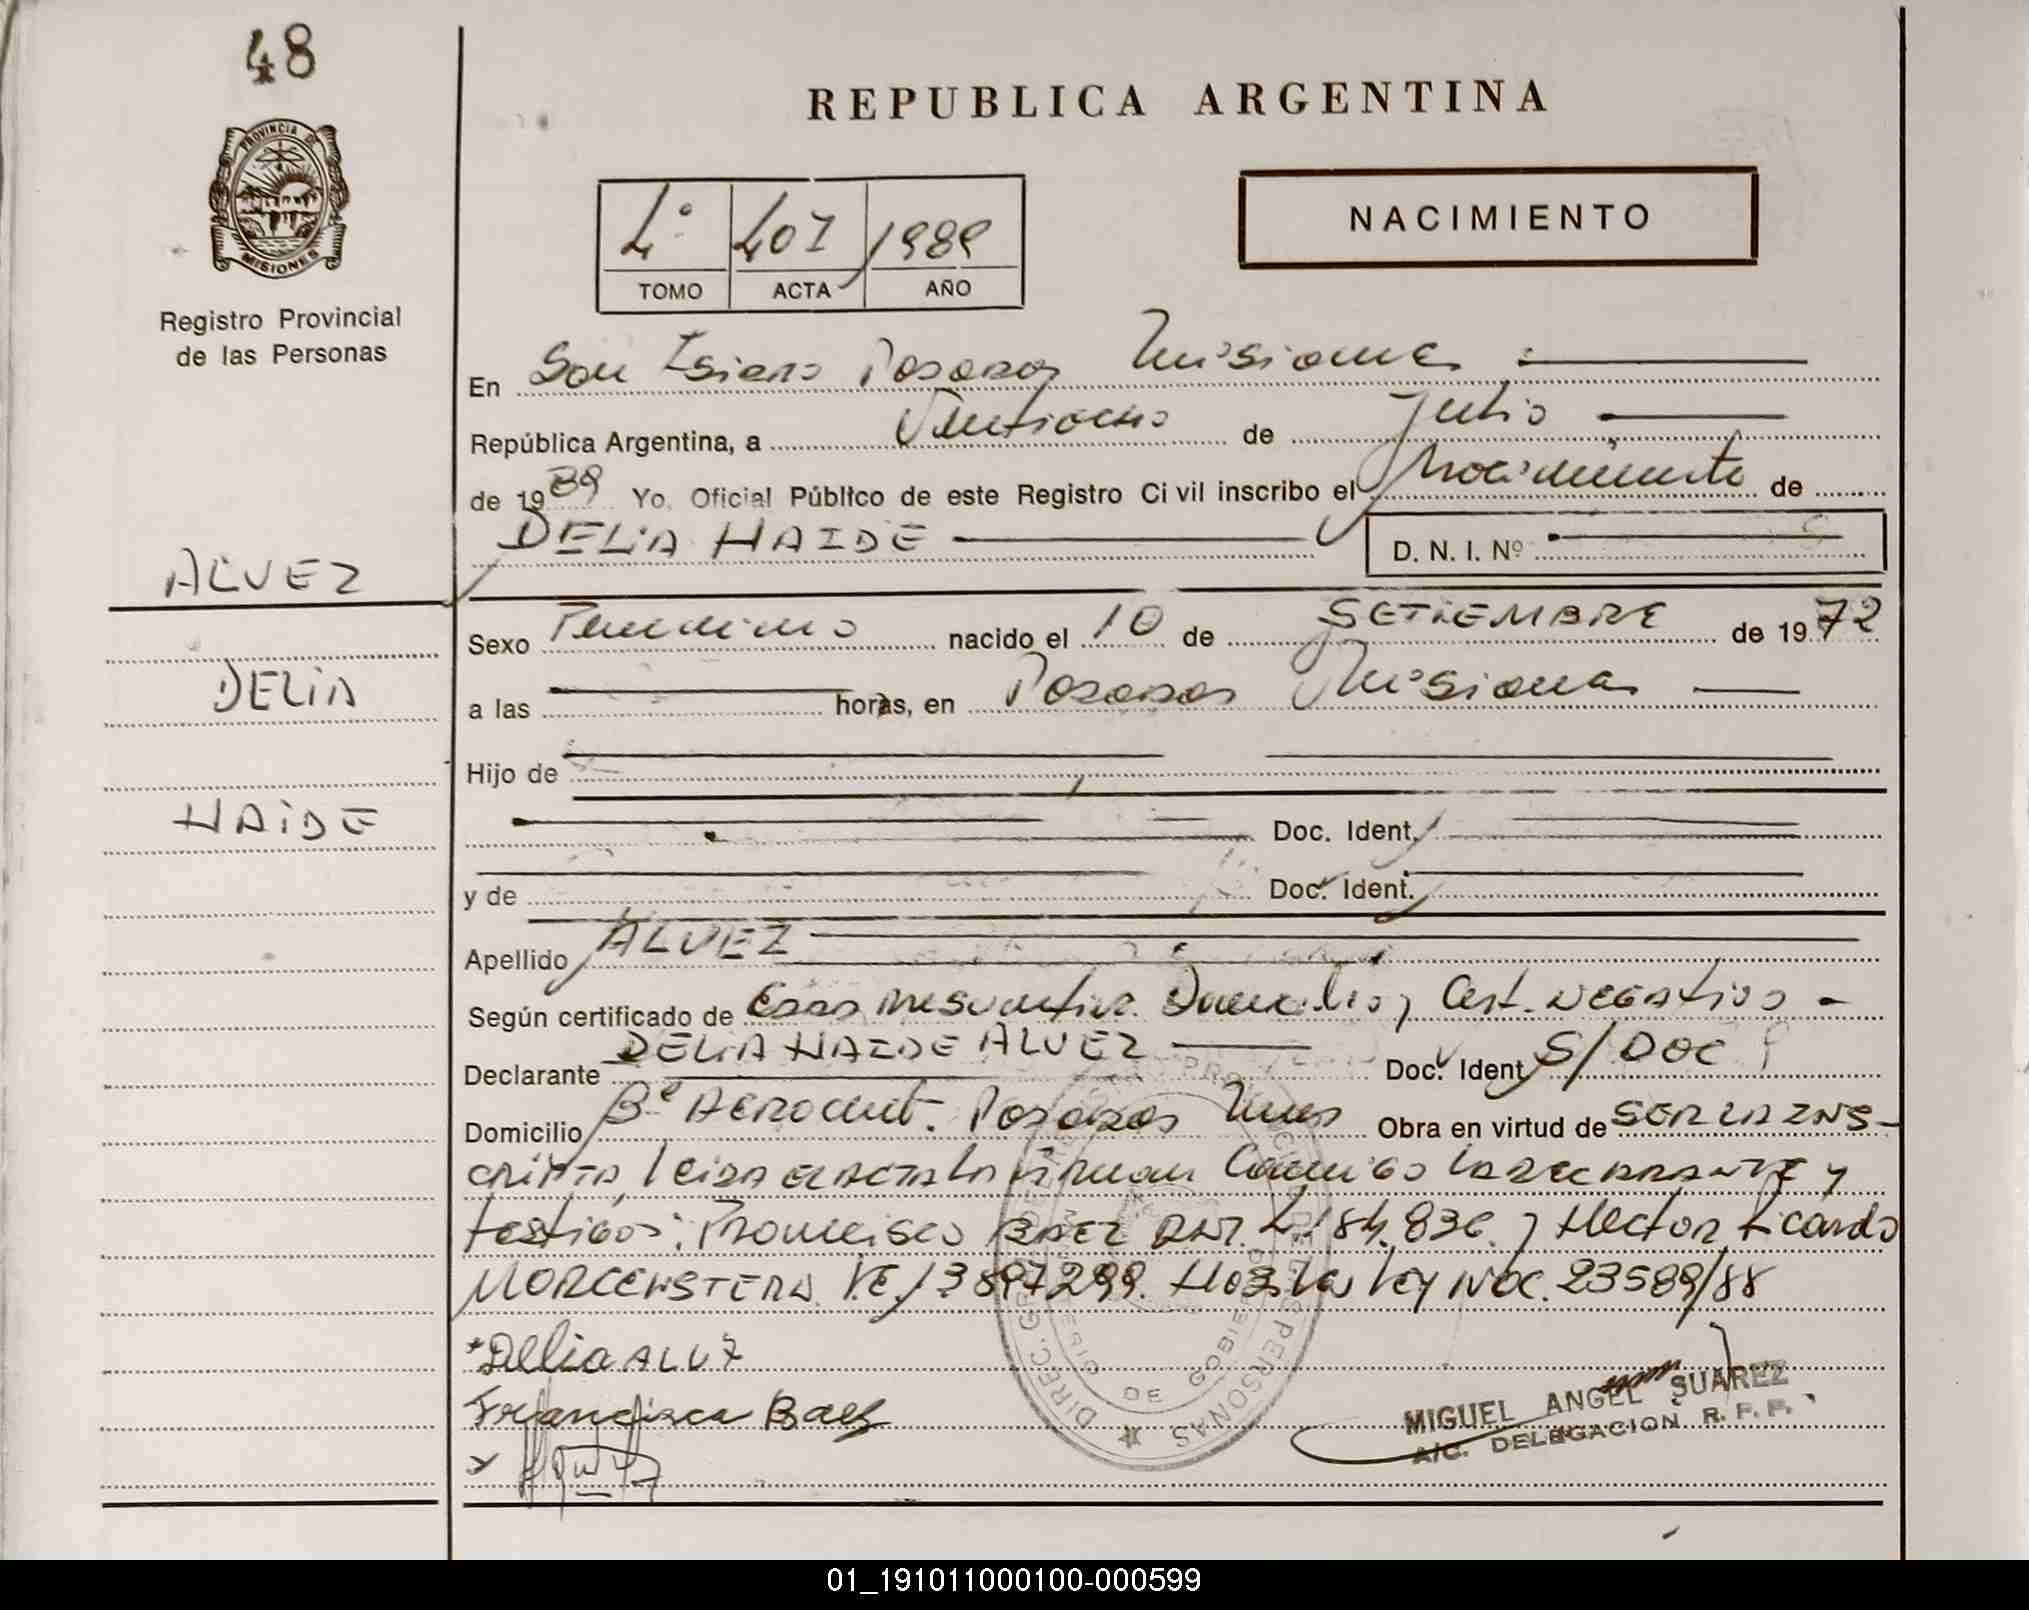 48
REPUBLICA ARGENTINA
PROVINCIA DE
MISIONES
Registro Provincial
de las Personas
4º 407 1989
TOMO ACTA AÑO
NACIMIENTO
En San Isidro Posadas Misiones
República Argentina, a Veintiocho de Julio
de 1989 Yo, Oficial Público de este Registro Civil inscribo el Nacimiento de
DELIA HAIDE D. N. I. Nº
ALVEZ
DELIA
HAIDE
Sexo Femenino nacido el 10 de SETIEMBRE de 1972
a las horas, en Posadas Misiones
Hijo de
Doc. Ident.
y de Doc. Ident.
Apellido ALVEZ
Según certificado de Edad Domicilio, Cert. NEGATIVO -
Declarante DELIA HAIDE ALVEZ Doc. Ident S/DOC
Domicilio Bº AEROCLUB. Posadas Mnes Obra en virtud de SER LA INS-
CRIPTA, Leida el ACTA la firman Conmigo la DECLARANTE y
testigos: BAEZ 4.184.836. y Hector Ricardo
MORCENSTERN. 13897299. Ley NAC. 23589/88
Delia ALVZ
Francisca Baez
MIGUEL ANGEL SUAREZ
A/C. DELEGACION R. P. P.
DIREC. GRAL. DEL REGISTRO PROVINCIAL DE LAS PERSONAS
MINISTERIO DE GOBIERNO
01_191011000100-000599